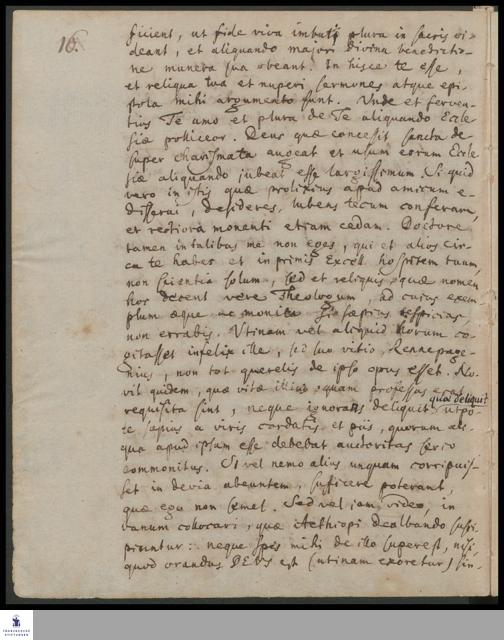 16.
ficient, ut fide viva imbuti plura in sacris vi-
deant, et aliquando majori divina benedictio-
ne munera sua obeant. In hisce te esse,
et reliqua tua et nuperi sermones atque epi-
stola mihi argumento sunt. Unde et ferven-
tius Te amo et plura de Te aliquando Eccle
siæ polliceor. Deus quæ concessit sancta de-
super charismata augeat et usum eorum Eccle
siæ aliquando jubeat esse largissimum. Si quid
vero in istis quæ prolixius apud amicum e-
disserui, desideres, lubens tecum conferam,
et rectiora monenti etiam cedam. Doctore
tamen in talibus me non eges, qui et alios cir-
ca te habes et in primis Excell. hospitem tuum,
non scientia solum, sed et reliquis quæ nomen
hoc decent vere Theologum, ad cuius exem
plum æque ac monita si sæpius respicias,
non errabis. Utinam vel aliquid horum co-
gitasset infelix ille, sed suo vitio,
nius, non tot querelis de ipso opus esset. No-
vit quidem, quæ vitæ illius quam professus erat
requisita sint, neque ignorans deliquit quæ deliquit utpo-
te sæpius a viris cordatis et piis, quorum ali-
qua apud ipsum esse debebat auctoritas serio
commonitus. Si vel nemo alius unquam corripuis-
set in devia abeuntem, sufficere poterant,
quæ ego non semel. Sed vel jam video, in
vanum collocari, quæ Aethiopi dealbando susci-
piuntur: neque spes mihi de illo superest, nisi,
quod orandus DEUS est (utinam exoretur) sin-
FRANCKESCHE
STIFTUNGEN